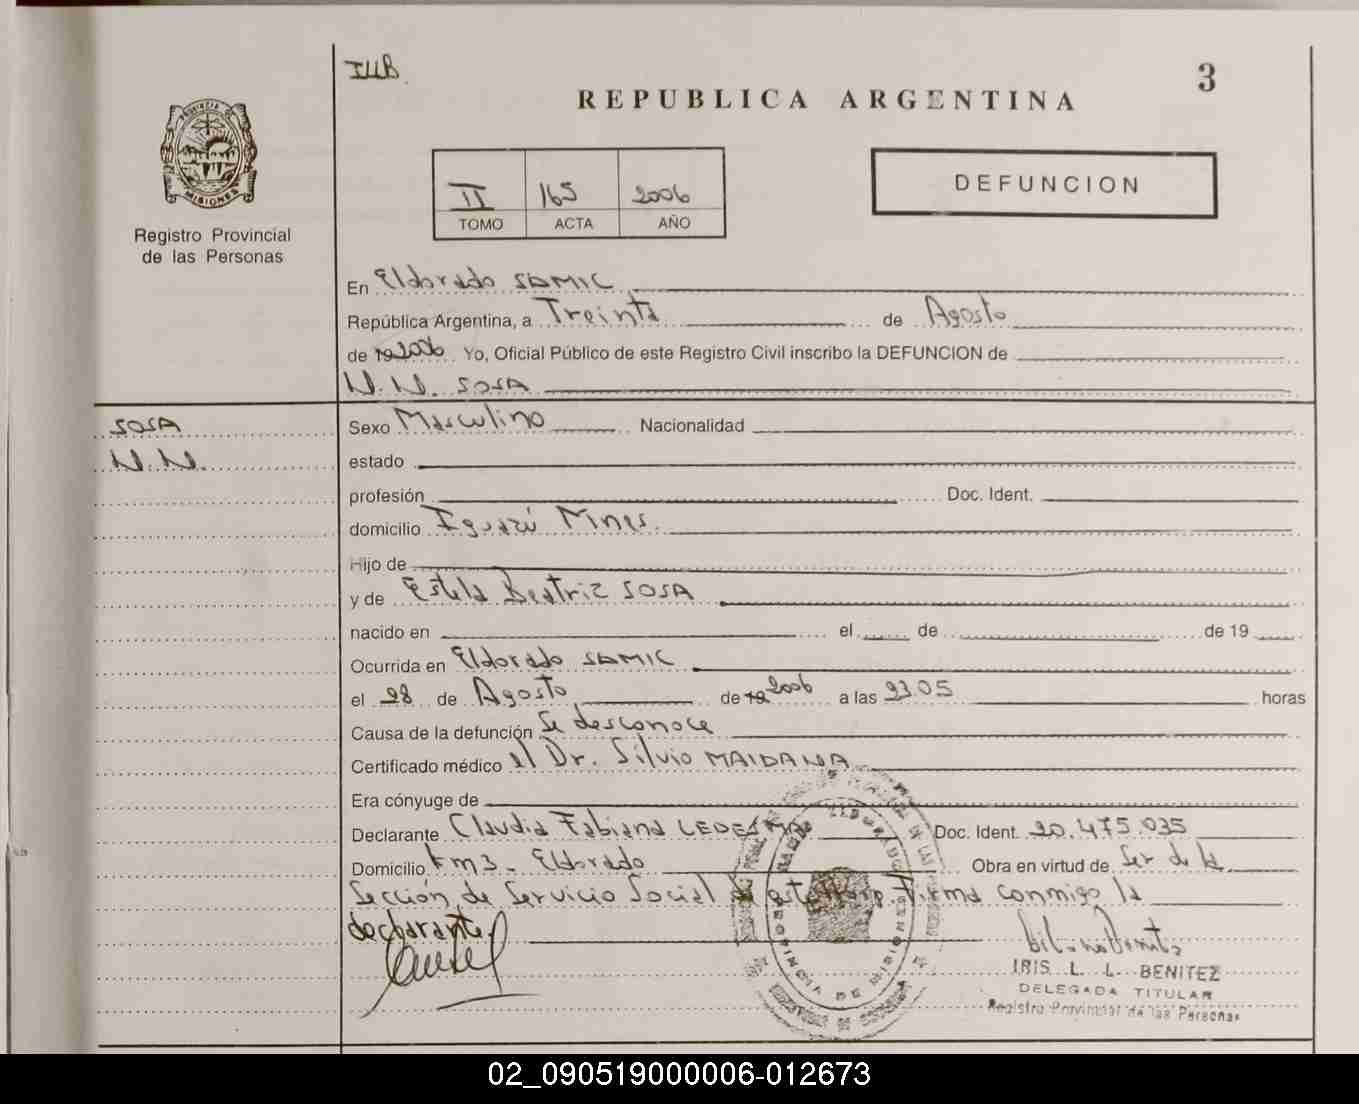 ILLB
3
REPUBLICA ARGENTINA
PROVINCIA DE
MISIONES
Registro Provincial
de las Personas
II 165 2006
TOMO ACTA AÑO
DEFUNCION
En Eldorado SAMIC
República Argentina, a Treinta de Agosto
de 19 2006 Yo, Oficial Público de este Registro Civil inscribo la DEFUNCION de
N.N. SOSA
SOSA
N.N.
Sexo Masculino Nacionalidad
estado
profesión Doc. Ident.
domicilio Iguazú Mnes.
Hijo de
y de Estela Beatriz SOSA
nacido en el de de 19
Ocurrida en Eldorado SAMIC
el 28 de Agosto de 19 2006 a las 23.05 horas
Causa de la defunción Se desconoce
Certificado médico el Dr. Silvio MAIDANA
Era cónyuge de
Declarante Claudia Fabiana LEDESMA Doc. Ident. 20.475.035
Domicilio km3 - Eldorado Obra en virtud de Ser de la
Sección de Servicio Social de este Hosp. Firma conmigo la
declarante.
PROVINCIA DE MISIONES
IRIS L. L. BENITEZ
DELEGADA TITULAR
Registro Provincial de las Personas
02_090519000006-012673